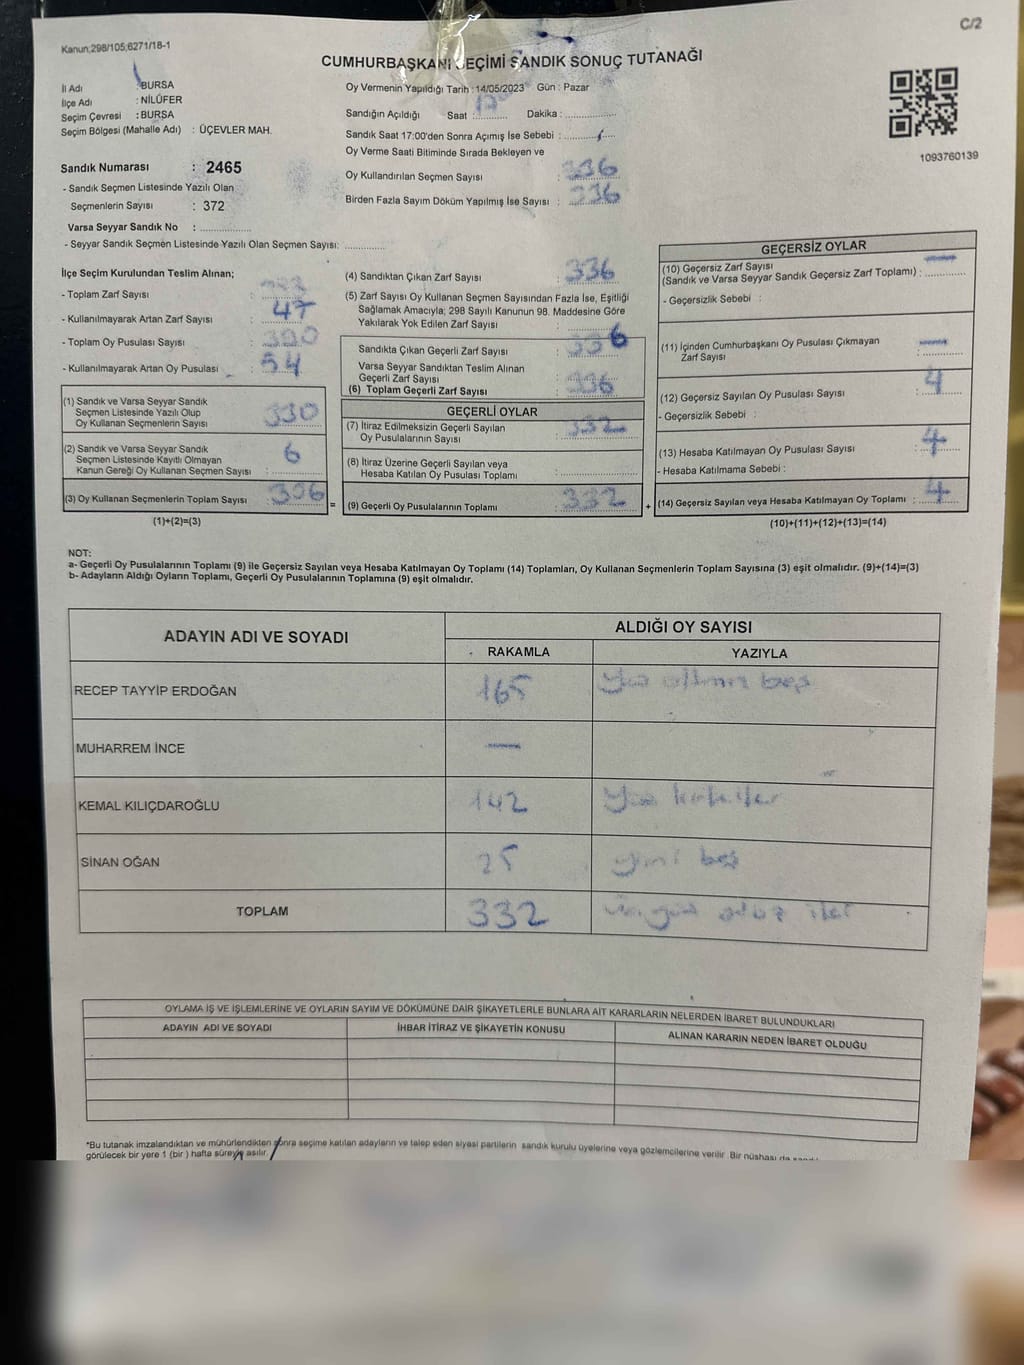 C/2
Kanun;298/105;6271/18-1
CUMHURBAŞKANI SEÇİMİ SANDIK SONUÇ TUTANAĞI
İl Adı : BURSA
İlçe Adı : NİLÜFER
Seçim Çevresi : BURSA
Seçim Bölgesi (Mahalle Adı) : ÜÇEVLER MAH.
Oy Vermenin Yapıldığı Tarih : 14/05/2023 Gün : Pazar
Sandığın Açıldığı Saat : Dakika :
Sandık Saat 17:00'den Sonra Açımış İse Sebebi :
Oy Verme Saati Bitiminde Sırada Bekleyen ve
Oy Kullandırılan Seçmen Sayısı : 336
Birden Fazla Sayım Döküm Yapılmış İse Sayısı : 336
1093760139
Sandık Numarası : 2465
- Sandık Seçmen Listesinde Yazılı Olan
Seçmenlerin Sayısı : 372
Varsa Seyyar Sandık No :
- Seyyar Sandık Seçmen Listesinde Yazılı Olan Seçmen Sayısı:
İlçe Seçim Kurulundan Teslim Alınan;
- Toplam Zarf Sayısı :
- Kullanılmayarak Artan Zarf Sayısı : 47
- Toplam Oy Pusulası Sayısı :
- Kullanılmayarak Artan Oy Pusulası : 54
(1) Sandık ve Varsa Seyyar Sandık
Seçmen Listesinde Yazılı Olup
Oy Kullanan Seçmenlerin Sayısı : 330
(2) Sandık ve Varsa Seyyar Sandık
Seçmen Listesinde Kayıtlı Olmayan
Kanun Gereği Oy Kullanan Seçmen Sayısı : 6
(3) Oy Kullanan Seçmenlerin Toplam Sayısı :
(1)+(2)=(3)
(4) Sandıktan Çıkan Zarf Sayısı : 336
(5) Zarf Sayısı Oy Kullanan Seçmen Sayısından Fazla İse, Eşitliği
Sağlamak Amacıyla; 298 Sayılı Kanunun 98. Maddesine Göre
Yakılarak Yok Edilen Zarf Sayısı :
Sandıkta Çıkan Geçerli Zarf Sayısı : 336
Varsa Seyyar Sandıktan Teslim Alınan
Geçerli Zarf Sayısı :
(6) Toplam Geçerli Zarf Sayısı : 336
GEÇERLİ OYLAR
(7) İtiraz Edilmeksizin Geçerli Sayılan
Oy Pusulalarının Sayısı : 332
(8) İtiraz Üzerine Geçerli Sayılan veya
Hesaba Katılan Oy Pusulası Toplamı :
= (9) Geçerli Oy Pusulalarının Toplamı : 332
GEÇERSİZ OYLAR
(10) Geçersiz Zarf Sayısı —
(Sandık ve Varsa Seyyar Sandık Geçersiz Zarf Toplamı) :
- Geçersizlik Sebebi :
(11) İçinden Cumhurbaşkanı Oy Pusulası Çıkmayan —
Zarf Sayısı :
(12) Geçersiz Sayılan Oy Pusulası Sayısı : 4
- Geçersizlik Sebebi :
(13) Hesaba Katılmayan Oy Pusulası Sayısı : 4
- Hesaba Katılmama Sebebi :
+ (14) Geçersiz Sayılan veya Hesaba Katılmayan Oy Toplamı : 4
(10)+(11)+(12)+(13)=(14)
NOT:
a- Geçerli Oy Pusulalarının Toplamı (9) ile Geçersiz Sayılan veya Hesaba Katılmayan Oy Toplamı (14) Toplamları, Oy Kullanan Seçmenlerin Toplam Sayısına (3) eşit olmalıdır. (9)+(14)=(3)
b- Adayların Aldığı Oyların Toplamı, Geçerli Oy Pusulalarının Toplamına (9) eşit olmalıdır.
ADAYIN ADI VE SOYADI ALDIĞI OY SAYISI
RAKAMLA YAZIYLA
RECEP TAYYİP ERDOĞAN 165 yüz altmış beş
MUHARREM İNCE —
KEMAL KILIÇDAROĞLU 142 yüz kırk iki
SİNAN OĞAN 25 yirmi beş
TOPLAM 332 üç yüz otuz iki
OYLAMA İŞ VE İŞLEMLERİNE VE OYLARIN SAYIM VE DÖKÜMÜNE DAİR ŞİKAYETLERLE BUNLARA AİT KARARLARIN NELERDEN İBARET BULUNDUKLARI
ADAYIN ADI VE SOYADI İHBAR İTİRAZ VE ŞİKAYETİN KONUSU ALINAN KARARIN NEDEN İBARET OLDUĞU
*Bu tutanak imzalandıktan ve mühürlendikten sonra seçime katılan adayların ve talep eden siyasi partilerin sandık kurulu üyelerine veya gözlemcilerine verilir. Bir nüshası da
görülecek bir yere 1 (bir ) hafta süreyle asılır.